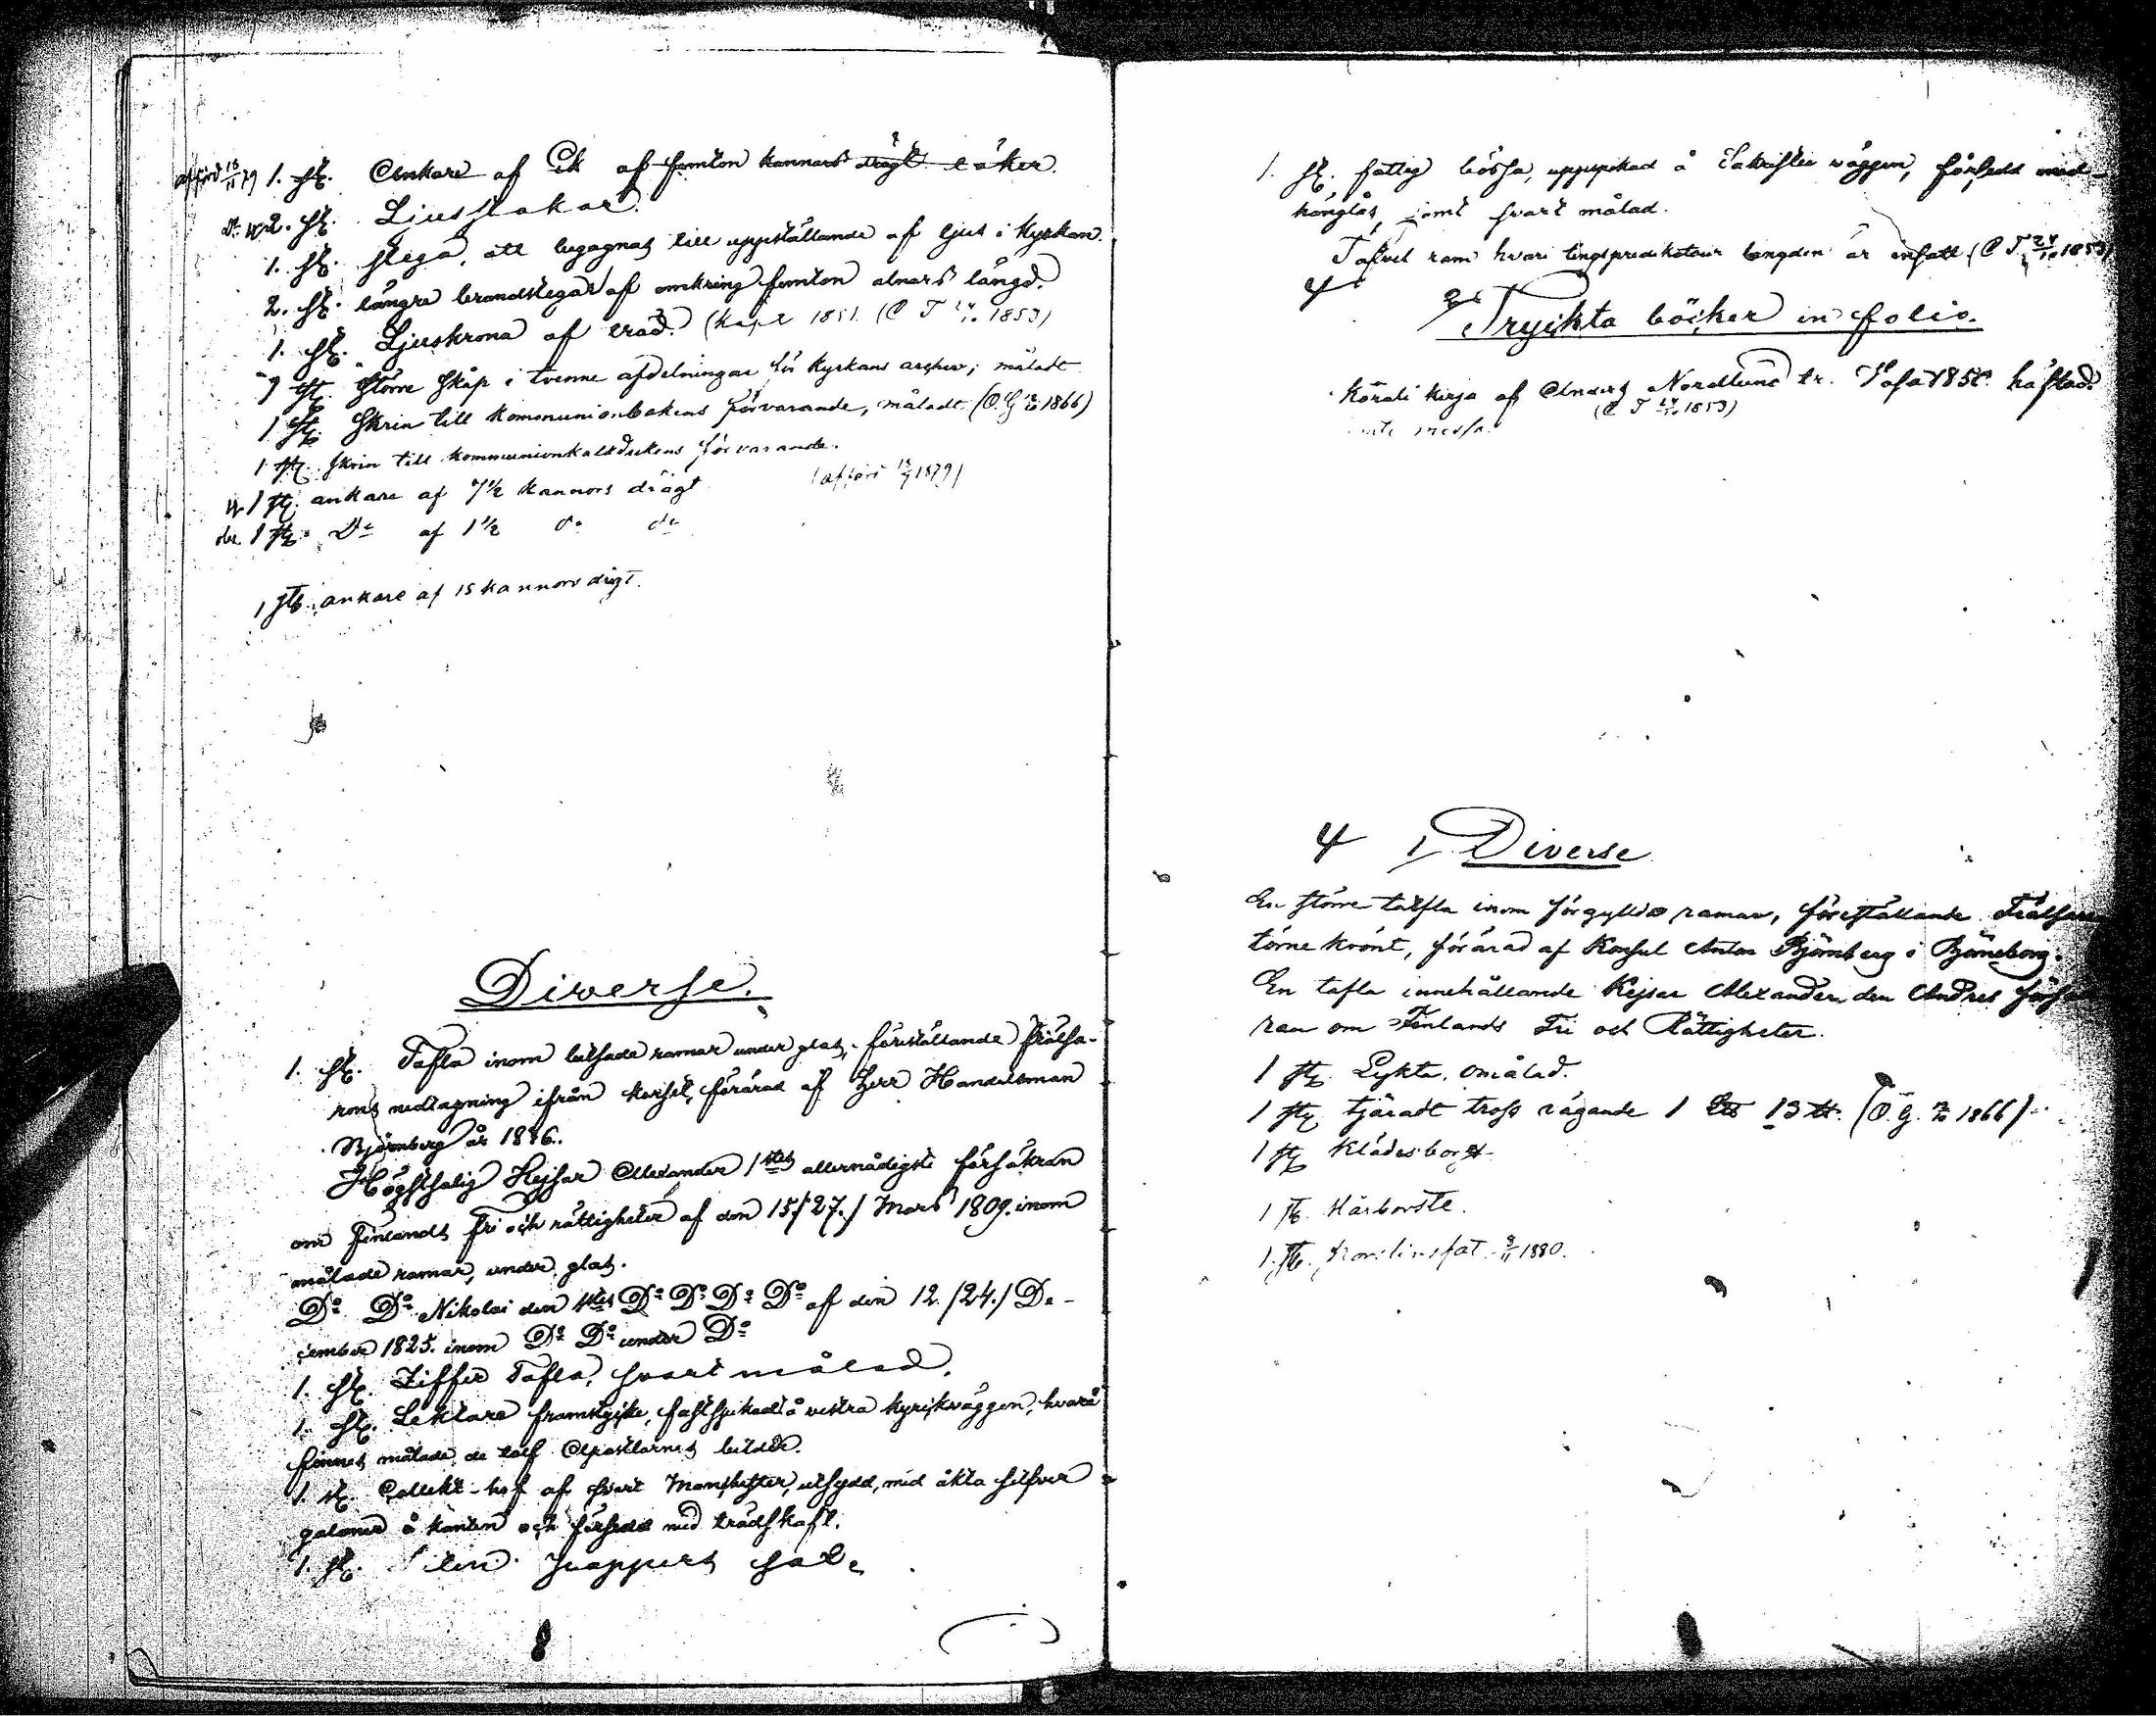 afförd 18/11 79 1. st. Ankare af Ek af femton kannors drägt läker.
2. st. Ljusstakar.
1. st. stega, att begagnas till uppställande af ljus i Kyrkan.
2. st. längre brandstegar af omkring femton alnars längd.
1. st. Ljuskrona af träd. (Köpt 1851. (C T 24/10 1853)
1 st. större skåp i tvenne afdelningar för Kyrkans archiv, måladt
1 st. Skrin till kommunionbokens förvarande, måladt. (O. G. 1866)
1 st. skrin till kommunionkalkdukens förvarande.
1 st. ankare af 7 1/2 kannors drägt (afförd 1879)
1 st. Do af 1 1/2 do do
1 st. ankare af 15 kannors drägt.
Diverse.
1. st. Tafla inom betsade ramar under glas, föreställande Frälsa-
rens nedtagning ifrån korset, förärad af Herr Handelsman
Björnberg år 1846.
Högstsalig Kejsar Alexander 1stes allernådigste försäkran
om Finlands fri och rättigheter af den 15/27./ Mars 1809. inom
målade ramar, under glas.
Do Do Nikolai den 1stes Do Do Do Do af den 12. /24./ De-
cember 1825. inom Do Do under Do
1. st. Ziffer Tafla, svart målad.
1. st. Läktare framstycke, fastspikad å vestra kyrkväggen, hvarå
finnes målade de tolf Apostlarnes bilder.
1. st. Collekt-håf af svart Manchester, utsydd, med äkta silfver
galoner å kanten och försedd med trädskaft.
1. st. fat.
1. st. fattig bössa, uppspikad å Sakristie väggen, försedd med
hänglås, jemt svart målad.
Tafvel ram hvari tingspredikotour längden är infatt (C T 24/10 1853)
4
Tryckta böcker in folio.
Koraali kirja af Anders Nordlund tr. 1850. häftad.
(C T 24/10 1853)
4 1 Diverse
En större tafla inom förgyllda ramar, föreställande Frälsaren
törnekrönt, förärad af Konsul Anton Björnberg i Björneborg.
En tafla innehållande Kejsar Alexander den Andres försä
ran om Finlands Fri och Rättigheter.
1 st. Lykta, omålad.
1 st. tjäradt tross vägande 1 13 (O. G. 1866)
1 st. Klädesborst
1 st. Hårborste.
1. st. fat 1880.